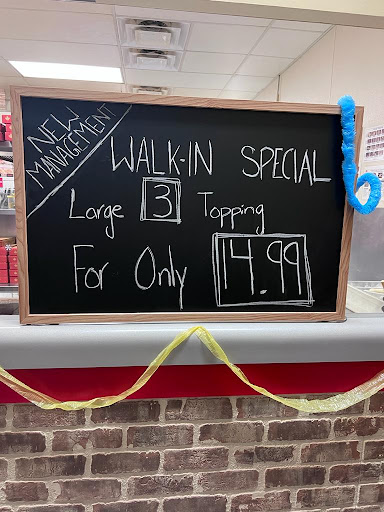 NEW
MANAGEMENT
WALK-IN SPECIAL
Large 3 Topping
For Only 14.99